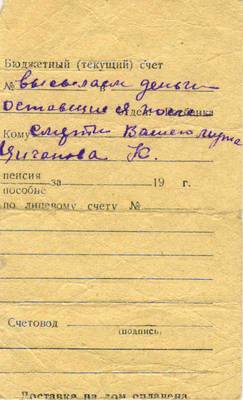 Бюджетный (текущий) счет
№ высылаем деньги
оставшиеся после
Кому смерти Вашего мужа
Цыганова К.
пенсия за 19 г.
пособие
по лицевому счету №
Счетовод
(подпись)
Доставка на дом оплачена